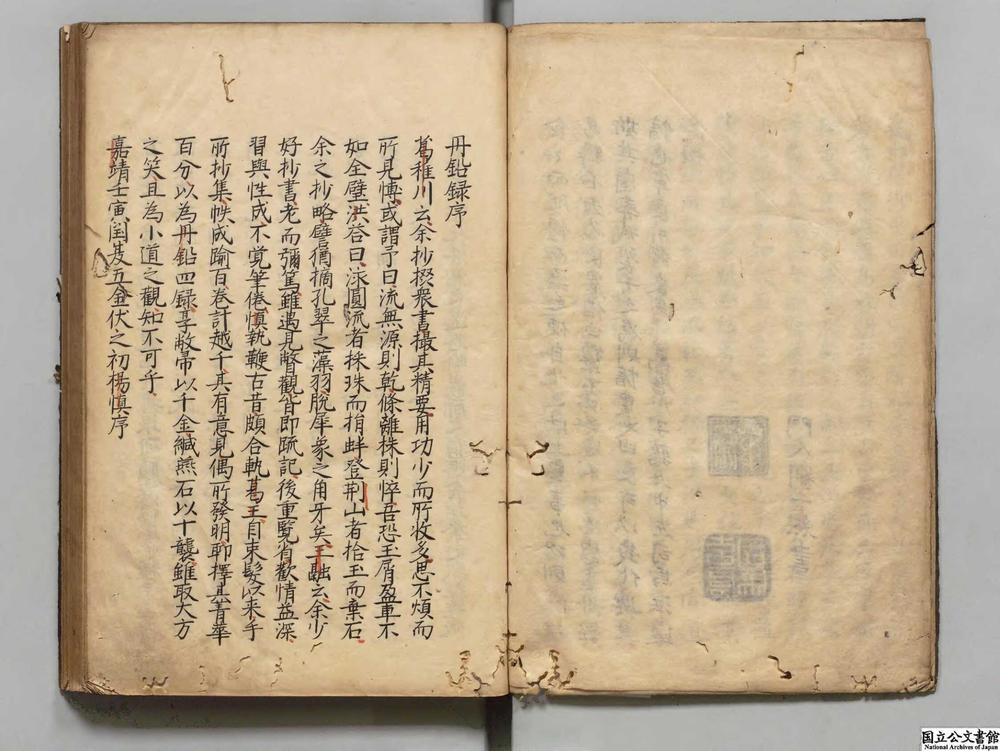 丹鉛録序
葛稚川云余抄掇衆書撮其精要用功少而所收多思不煩而
所見博或謂予曰流無源則乾條離株則悴吾恐玉屑盈車不
如全璧洪荅曰泳圓流者採珠而捐蚌登荆山者拾玉而棄石
余之抄略譬猶摘孔翠之藻羽脫犀象之角牙矣王融云余少
好抄書老而彌篤雖遇見瞥觀皆即疏記後重覽省歡情益深
習與性成不覺筆倦慎執鞭古昔頗合軌葛王自束髮以来手
所抄集帙成踰百卷計越千其有意見偶所發明聊擇其菁華
百分以為丹鉛四録享敝帚以千金緘燕石以十襲雖取大方
之笑且為小道之觀知不可乎
嘉靖壬寅閏五金伏之初楊慎序
国立公文書館
National Archives of Japan